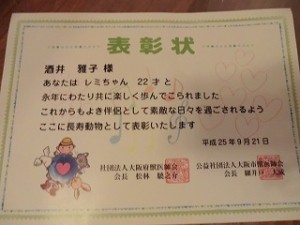 表彰状
酒井 雅子 様
あなたは レミちゃん 22才と
永年にわたり共に楽しく歩んでこられました
これからもよき伴侶として素敵な日々を過ごされるよう
ここに長寿動物として表彰いたします
平成25年9月21日
社団法人大阪府獣医師会
会長 松林 驍之介
公益社団法人大阪市獣医師会
会長 細井戸 大成